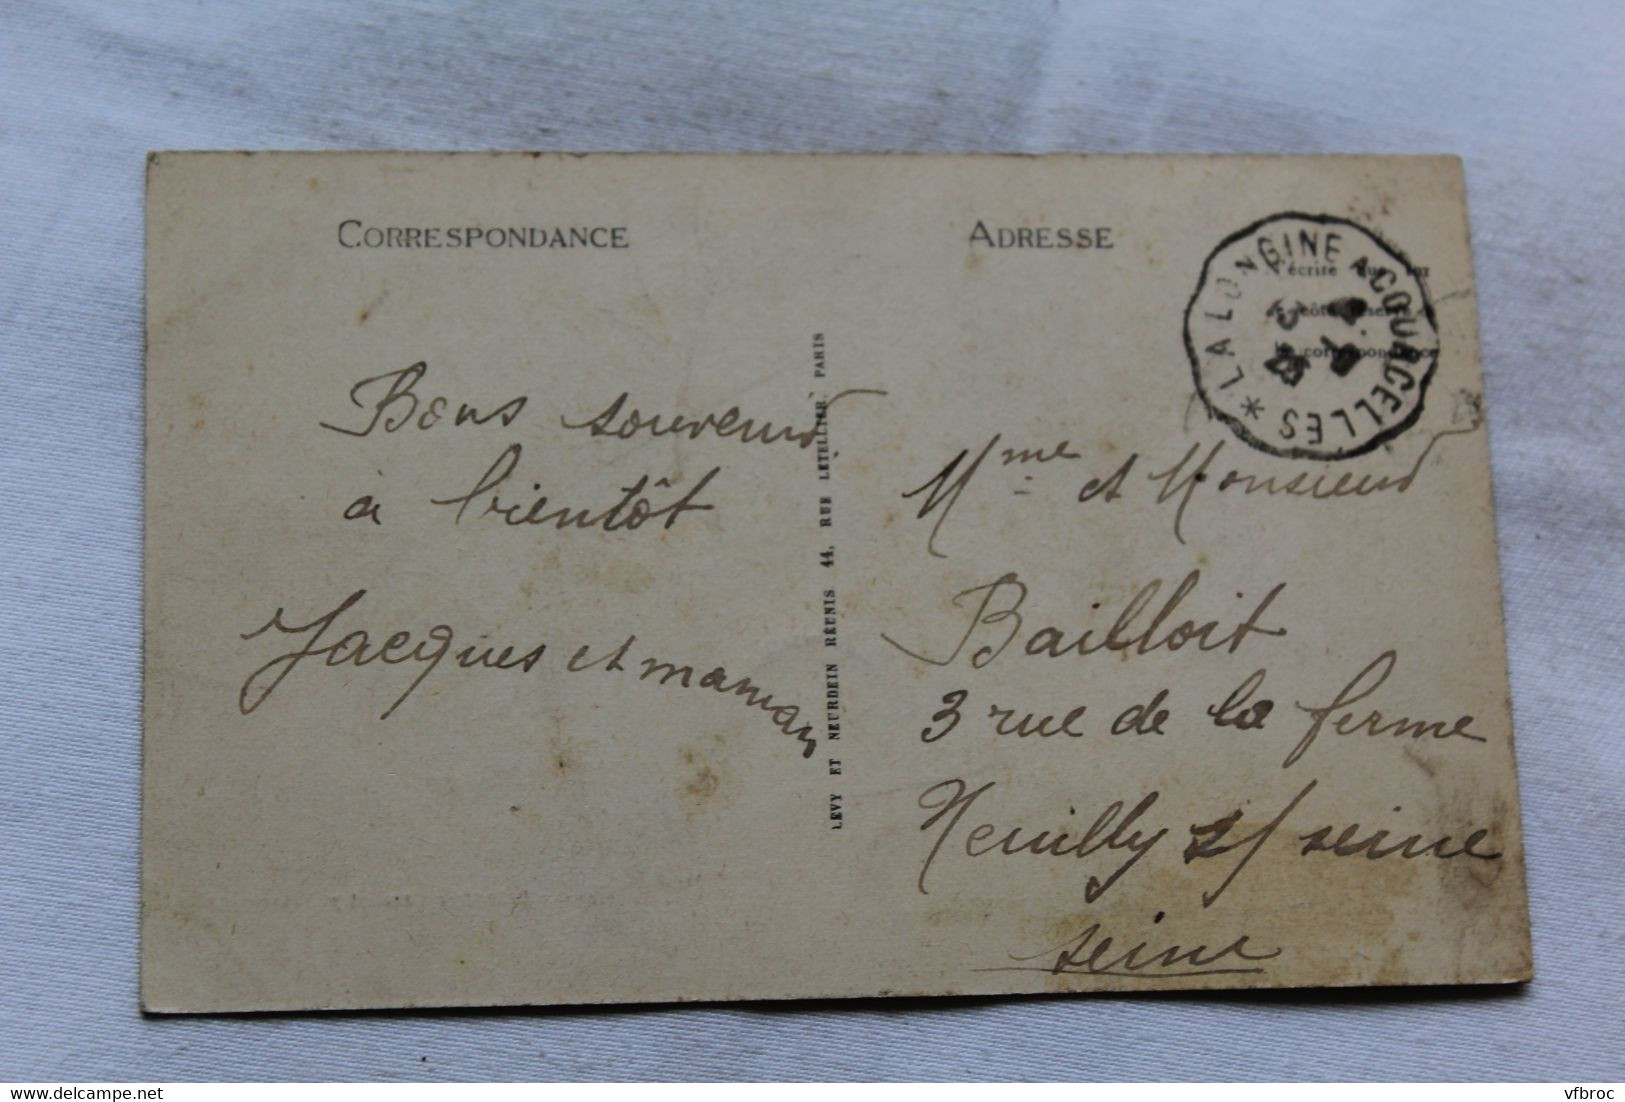 CORRESPONDANCE
Bons souvenirs
à bientôt
Jacques et maman
LEVY ET NEURDEIN RÉUNIS 44, RUE LETELLIER, PARIS
ADRESSE
LA LONGINE A COURCELLES *
N'écrire
côté réservé
correspondance
Mme et Monsieur
Bailloit
3 rue de la ferme
Neuilly s/ seine
seine
delcampe.net
vfbroc